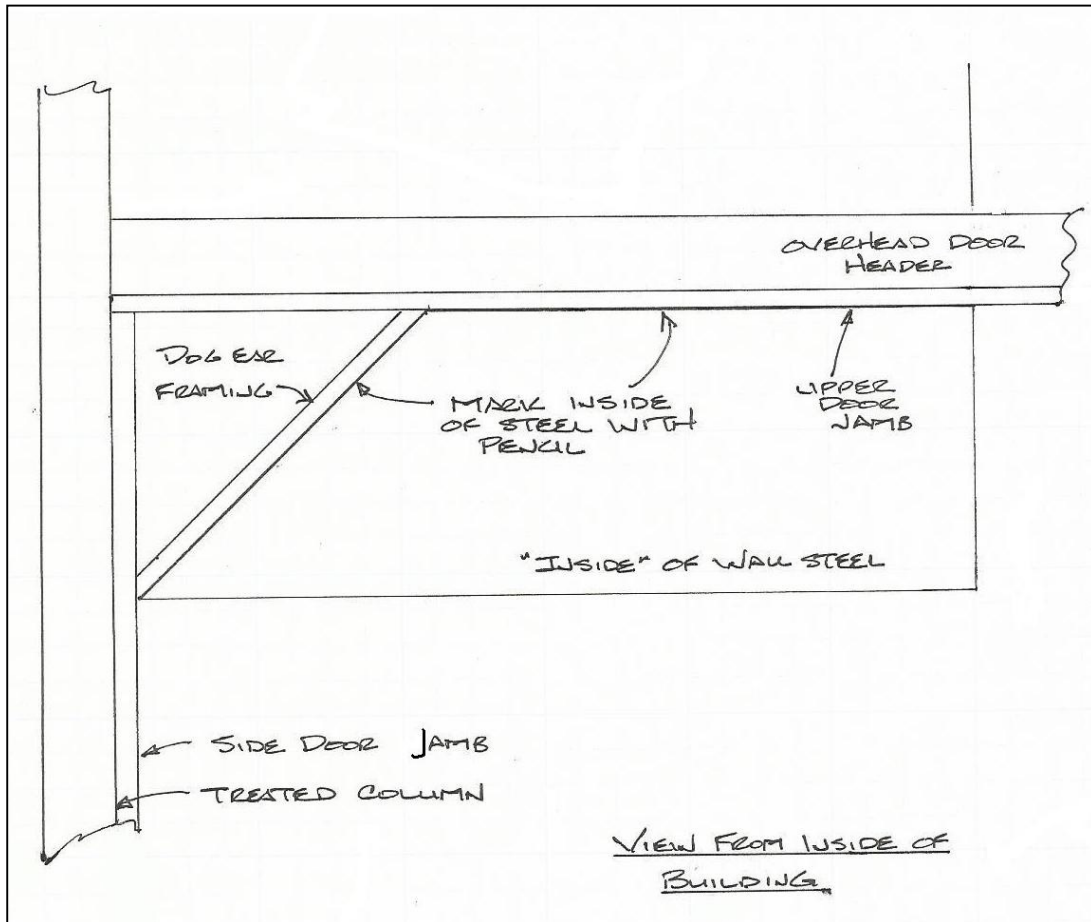 OVERHEAD DOOR
HEADER
DOG EAR
FRAMING
MARK INSIDE
OF STEEL WITH
PENCIL
UPPER
DOOR
JAMB
"INSIDE" OF WALL STEEL
SIDE DOOR JAMB
TREATED COLUMN
VIEW FROM INSIDE OF
BUILDING